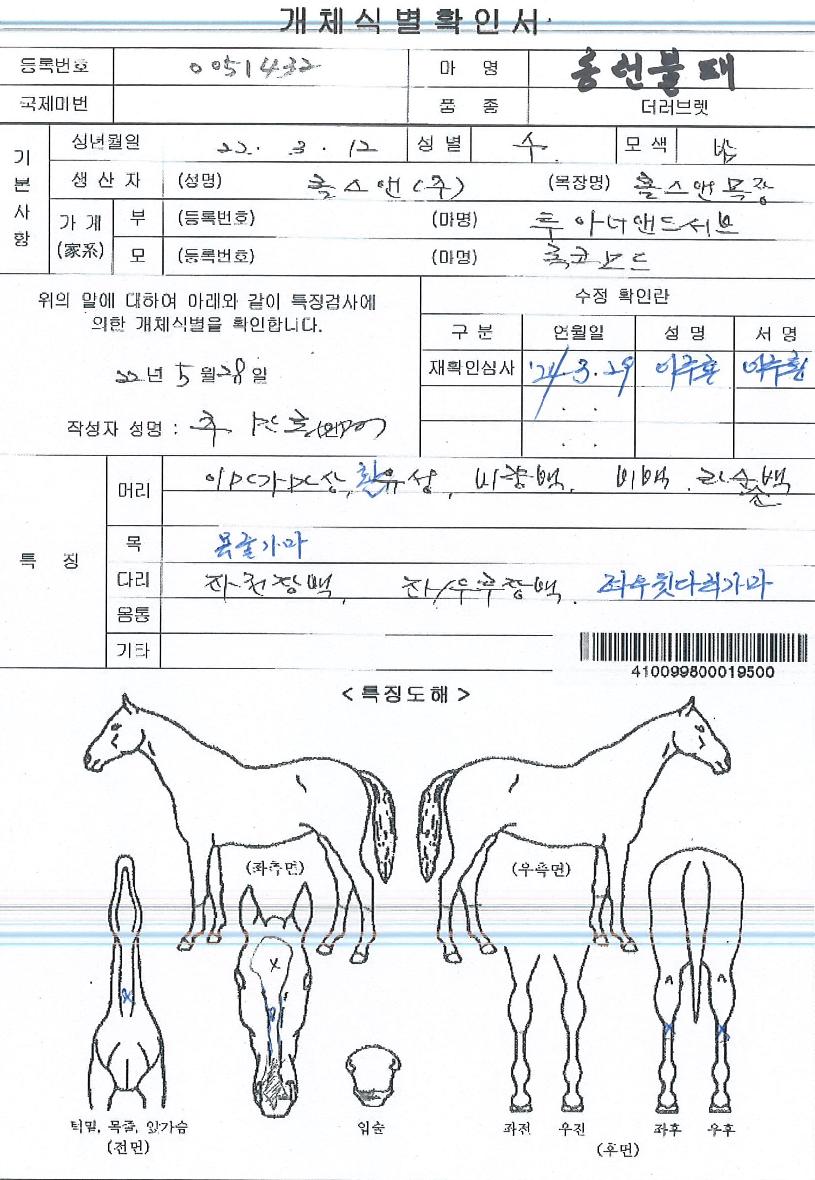 개체식별확인서
등록번호 0051432 마 명
국제마번 품 종 더러브렛
기본사항
생년월일 22. 3. 12 성별 수 모색 밤
생 산 자 (성명) 홀스앤(주) (목장명) 홀스앤목장
가 계 (家系) 부 (등록번호) (마명) 투아너앤드서브
모 (등록번호) (마명)
위의 말에 대하여 아래와 같이 특징검사에
의한 개체식별을 확인합니다.
22년 5월 28일
작성자 성명 :
수정 확인란
구 분 연월일 성 명 서 명
재확인심사 '24. 3. 29 이주환 이주환
. .
. .
특 징
머리 유성, 비량백, 비백
목 목줄가마
다리 좌전장백, 좌/우후장백, 좌우뒷다리가마
몸통
기타
410099800019500
< 특징도해 >
(좌측면) (우측면)
턱밑, 목줄, 앞가슴
(전면)
입술
좌전 우전 좌후 우후
(후면)